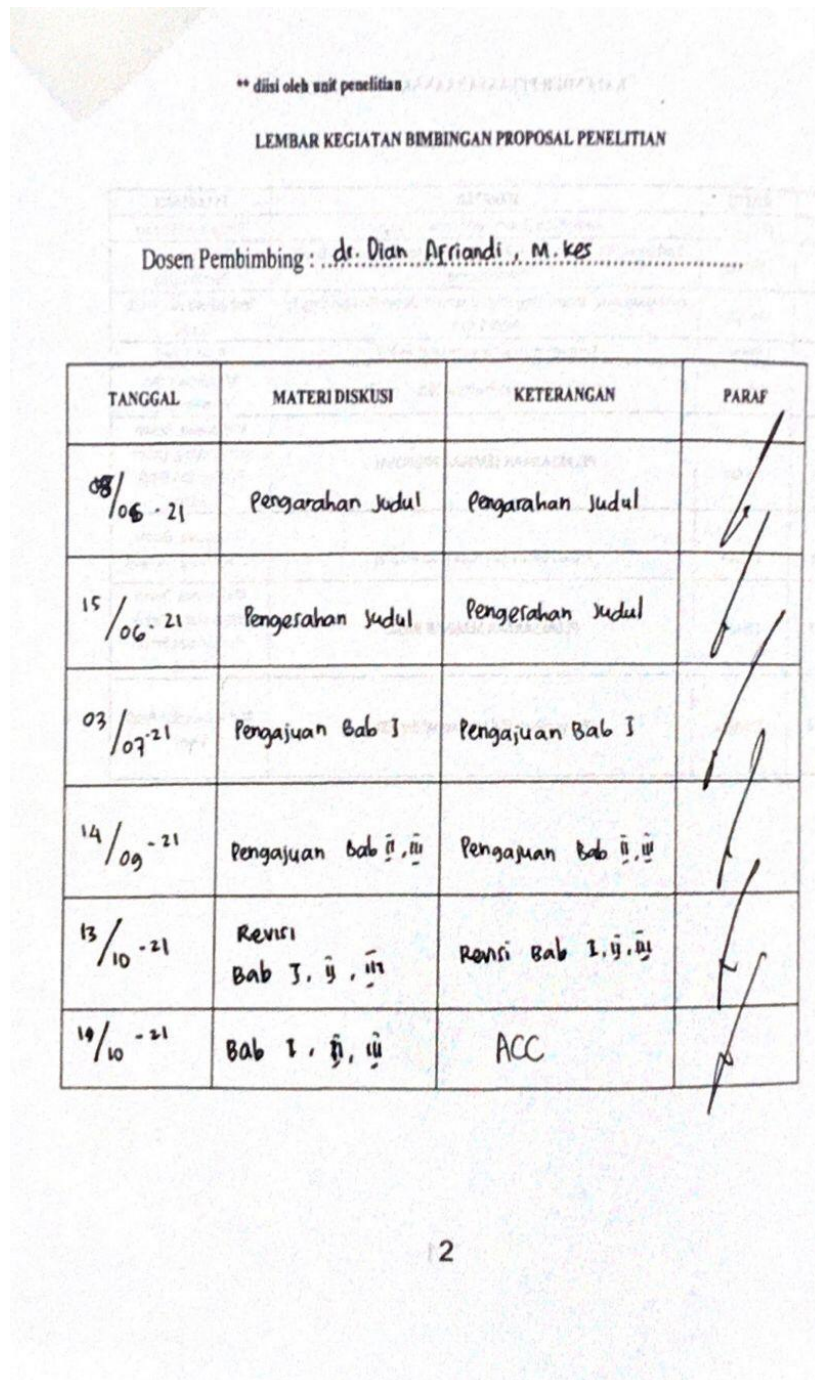 ** diisi oleh unit penelitian
LEMBAR KEGIATAN BIMBINGAN PROPOSAL PENELITIAN
Dosen Pembimbing : dr. Dian Afriandi, M.Kes
TANGGAL MATERI DISKUSI KETERANGAN PARAF
08/06-21 Pengarahan Judul Pengarahan Judul
15/06-21 Pengesahan Judul Pengesahan Judul
03/07-21 Pengajuan Bab I Pengajuan Bab I
14/09-21 Pengajuan Bab II, III Pengajuan Bab II, III
13/10-21 Revisi
Bab I, II, III Revisi Bab I, II, III
19/10-21 Bab I, II, III ACC
2